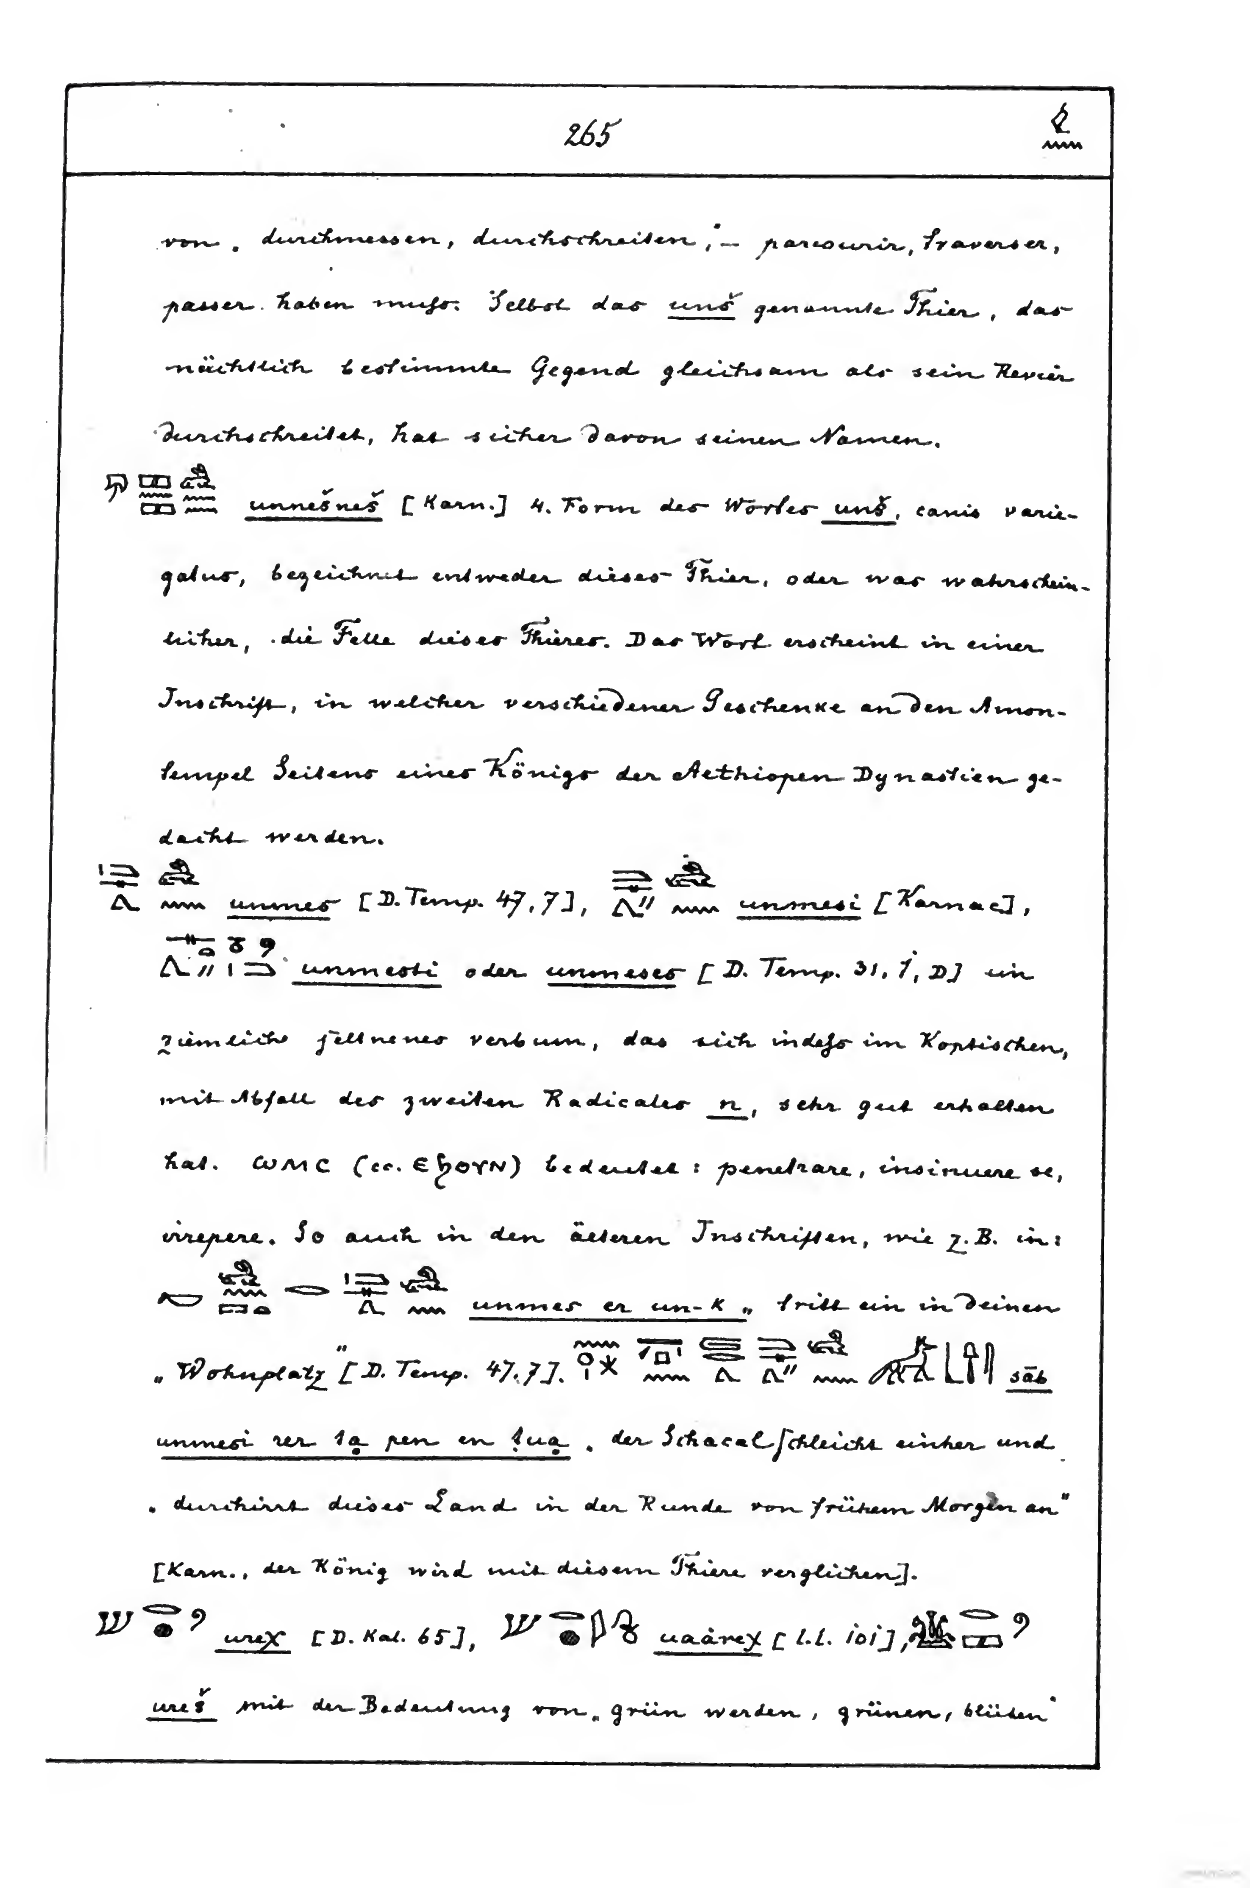 265
von „ durchmessen, durchschreiten,“ – parcourir, traverser,
passer haben muſs. Selbst das unš genannte Thier, das
nächtlich bestimmte Gegend gleichsam als sein Revier
durchschreitet, hat sicher davon seinen Namen.
unnešneš [Karn.] 4. Form des Wortes unš, canis varie-
gatus, bezeichnet entweder dieses Thier, oder was wahrschein-
licher, die Felle dieses Thieres. Das Wort erscheint in einer
Inschrift, in welcher verschiedener Geschenke an den Amon-
tempel Seitens eines Königs der Aethiopen Dynastien ge-
dacht werden.
unmes [D. Temp. 47,7], unmesi [Karnac],
unmesti oder unmeses [D. Temp. 31, 1, D] ein
ziemlich seltnenes verbum, das sich indeſs im Koptischen,
mit Abfall des zweiten Radicales n, sehr gut erhalten
hat. ⲱⲙⲥ (cc. ⲉϧⲟⲩⲛ) bedeutet: penetrare, insinuere se,
irrepere. So auch in den älteren Inschriften, wie z.B. in:
unmes er un-k „ tritt ein in deinen
„ Wohnplatz“ [D. Temp. 47,7]. sāb
unmesi rer ta pen en ṭua „ der Schacal schleicht einher und
„ durchirrt dieses Land in der Runde von frühem Morgen an“
[Karn., der König wird mit diesem Thiere verglichen].
ureχ [D. Kal. 65], uaȧreχ [l.l. 101],
ureš mit der Bedeutung von „ grün werden, grünen, blühen“